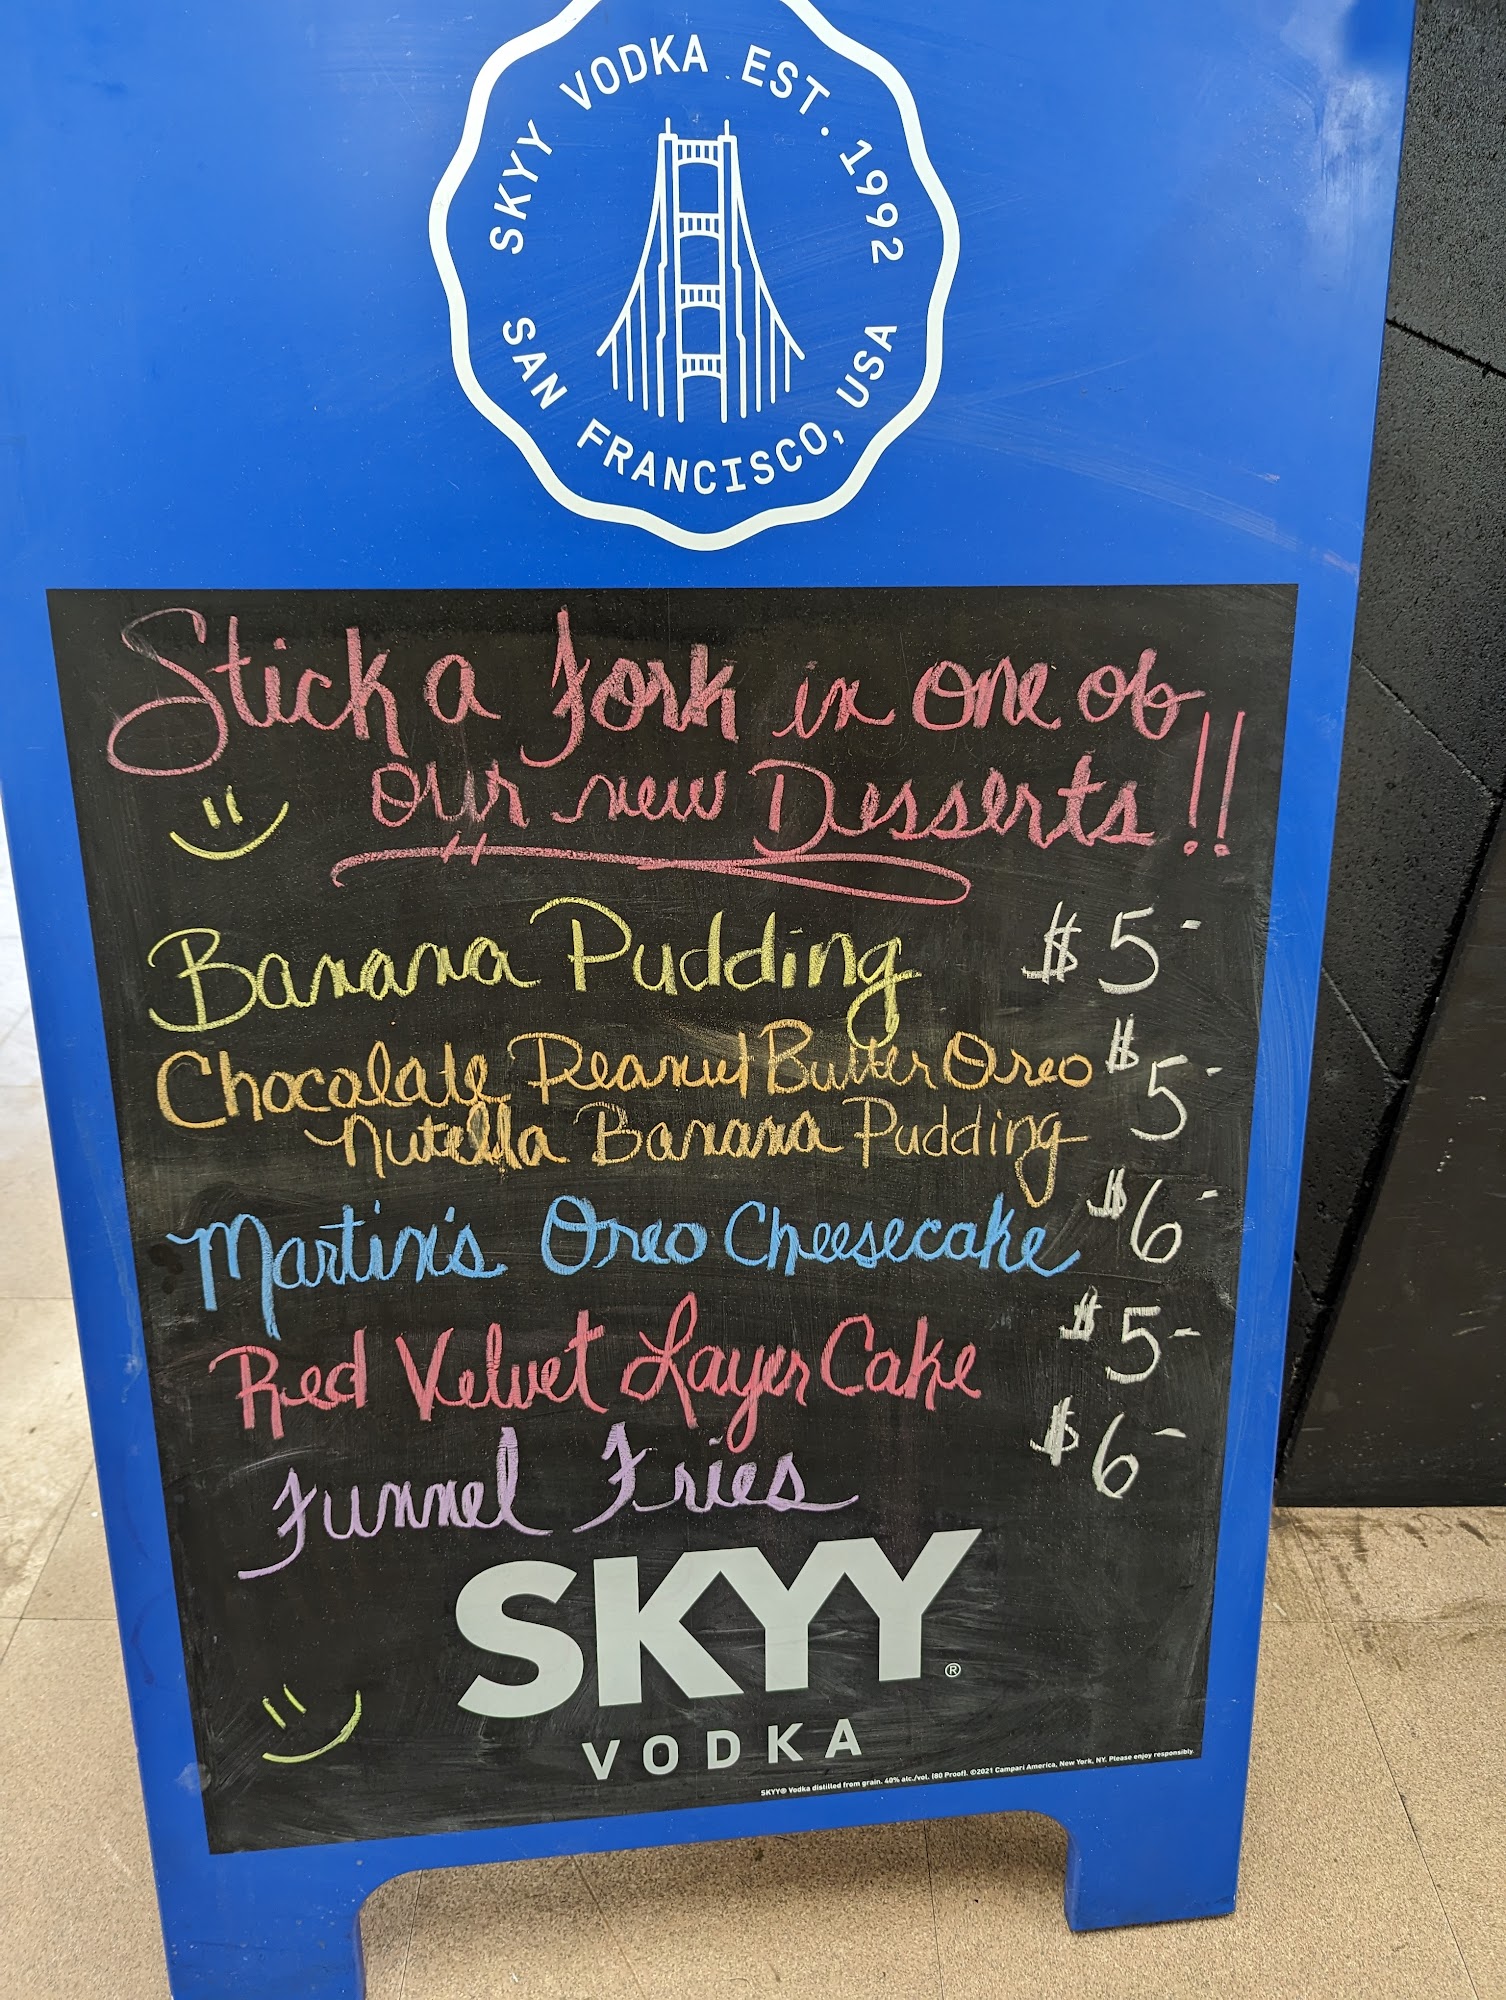 SKYY VODKA EST. 1992
SAN FRANCISCO, USA
Stick a Fork in one of
our new Desserts!!
Banana Pudding $5-
Chocolate Peanut Butter Oreo $5-
Nutella Banana Pudding
Martin's Oreo Cheesecake $6-
Red Velvet Layer Cake $5-
Funnel Fries $6-
SKYY®
VODKA
SKYY® Vodka distilled from grain. 40% alc./vol. (80 Proof). ©2021 Campari America, New York, NY. Please enjoy responsibly.